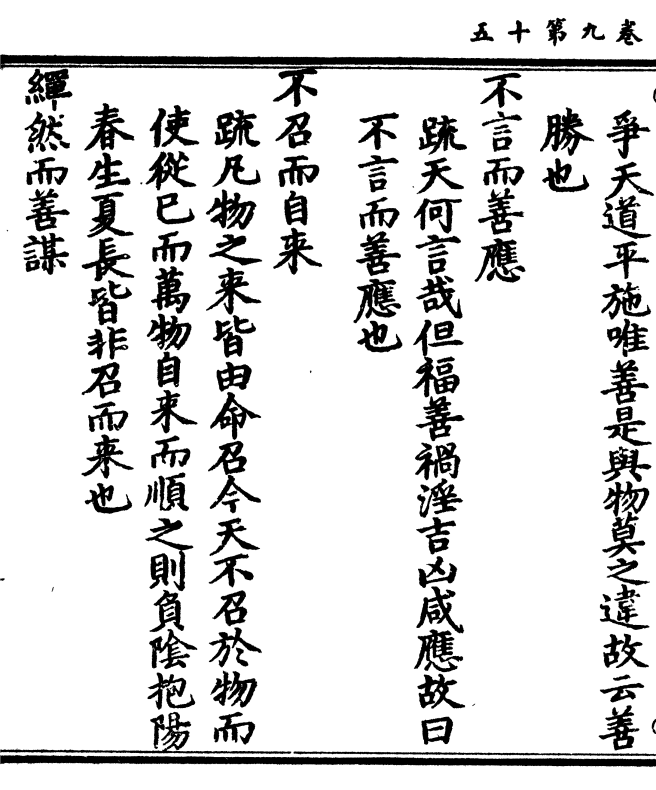 卷九第十五
爭天道平施唯善是與物莫之違故云善
勝也
不言而善應
䟽天何言哉但福善禍淫吉凶咸應故曰
不言而善應也
不召而自来
䟽凡物之来皆由命召今天不召於物而
使從已而萬物自来而順之則負陰抱陽
春生夏長皆非召而来也
繟然而善謀